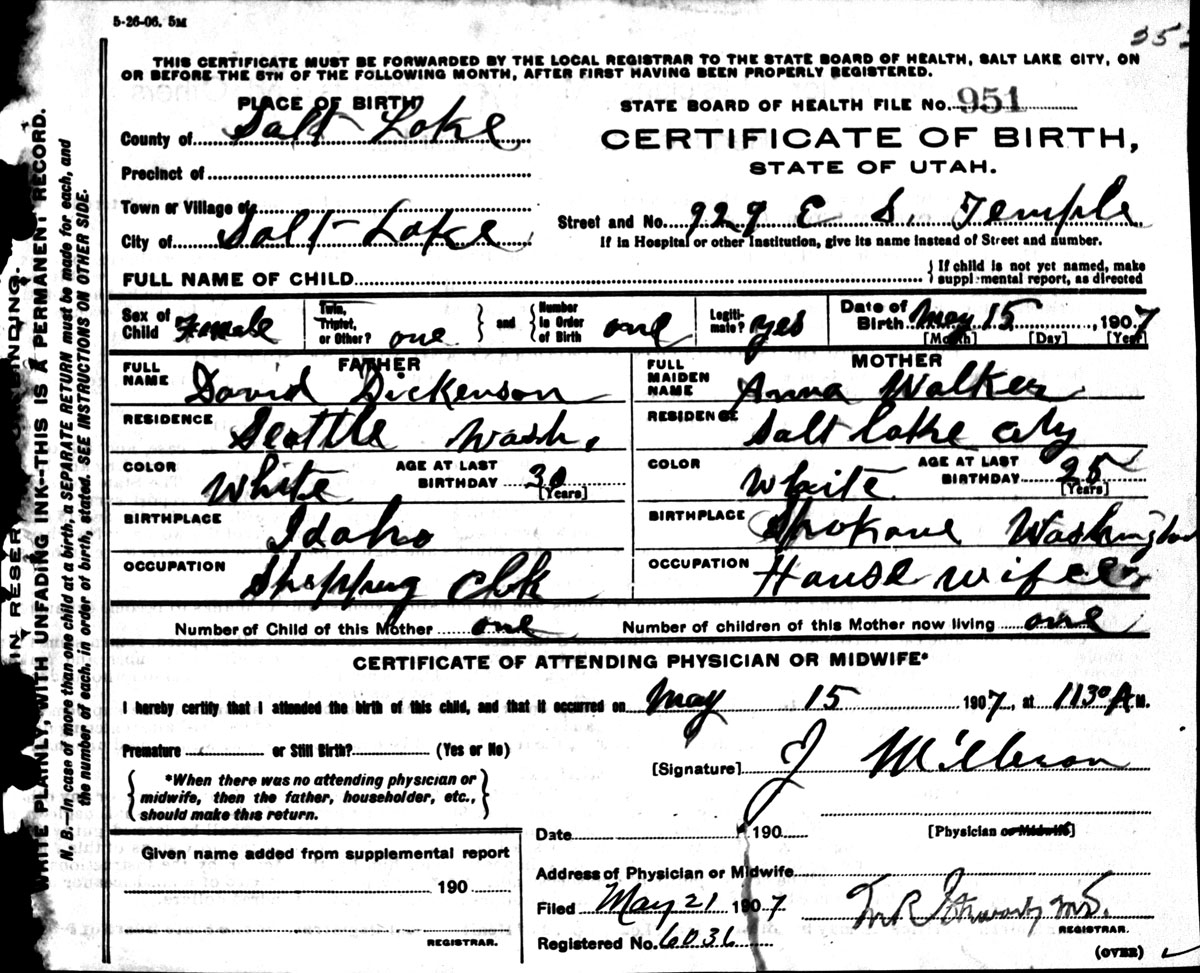 5-26-06. 5M
THIS CERTIFICATE MUST BE FORWARDED BY THE LOCAL REGISTRAR TO THE STATE BOARD OF HEALTH, SALT LAKE CITY, ON
OR BEFORE THE 5TH OF THE FOLLOWING MONTH, AFTER FIRST HAVING BEEN PROPERLY REGISTERED.
PLACE OF BIRTH
STATE BOARD OF HEALTH FILE No. 951
County of Salt Lake
CERTIFICATE OF BIRTH,
STATE OF UTAH.
Precinct of
Town or Village of
Street and No. 929 E S. Temple
City of Salt Lake
If in Hospital or other Institution, give its name instead of Street and number.
FULL NAME OF CHILD
If child is not yet named, make
supplemental report, as directed
Sex of Child Female
Twin, Triplet, or Other? one
and
Number in Order of Birth one
Legiti-mate? yes
Date of Birth May 15, 1907
[Month] [Day] [Year]
FATHER
MOTHER
FULL NAME David Dickenson
FULL MAIDEN NAME Anna Walker
RESIDENCE Seattle Wash.
RESIDENCE Salt Lake City
COLOR White AGE AT LAST BIRTHDAY 30 [Years]
COLOR White AGE AT LAST BIRTHDAY 25 [Years]
BIRTHPLACE Idaho
BIRTHPLACE Spokane Washington
OCCUPATION Shopping Clk
OCCUPATION House wife
Number of Child of this Mother one
Number of children of this Mother now living one
CERTIFICATE OF ATTENDING PHYSICIAN OR MIDWIFE*
I hereby certify that I attended the birth of this child, and that it occurred on May 15 1907, at 1130 A M.
Premature or Still Birth? (Yes or No)
[Signature] J Millerson
*When there was no attending physician or
midwife, then the father, householder, etc.,
should make this return.
Date 190
[Physician or Midwife]
Given name added from supplemental report
Address of Physician or Midwife
190
Filed May 21 1907
M.D.
REGISTRAR.
REGISTRAR.
Registered No. 6036
(OVER)
IN RESER
WRITE PLAINLY, WITH UNFADING INK--THIS IS A PERMANENT RECORD.
N. B.—In case of more than one child at a birth, a SEPARATE RETURN must be made for each, and
the number of each, in order of birth, stated. SEE INSTRUCTIONS ON OTHER SIDE.